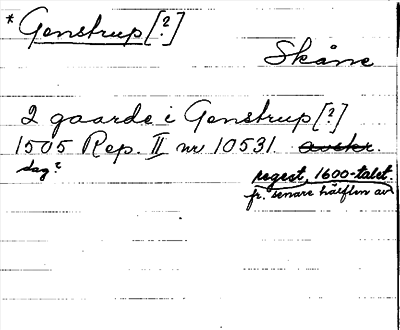 * Genstrup [?]
Skåne
2 gaarde i Genstrup [?]
1505 Rep. II nr 10531. avskr.
dag?
regest, 1600-talet.
fr. senare hälften av